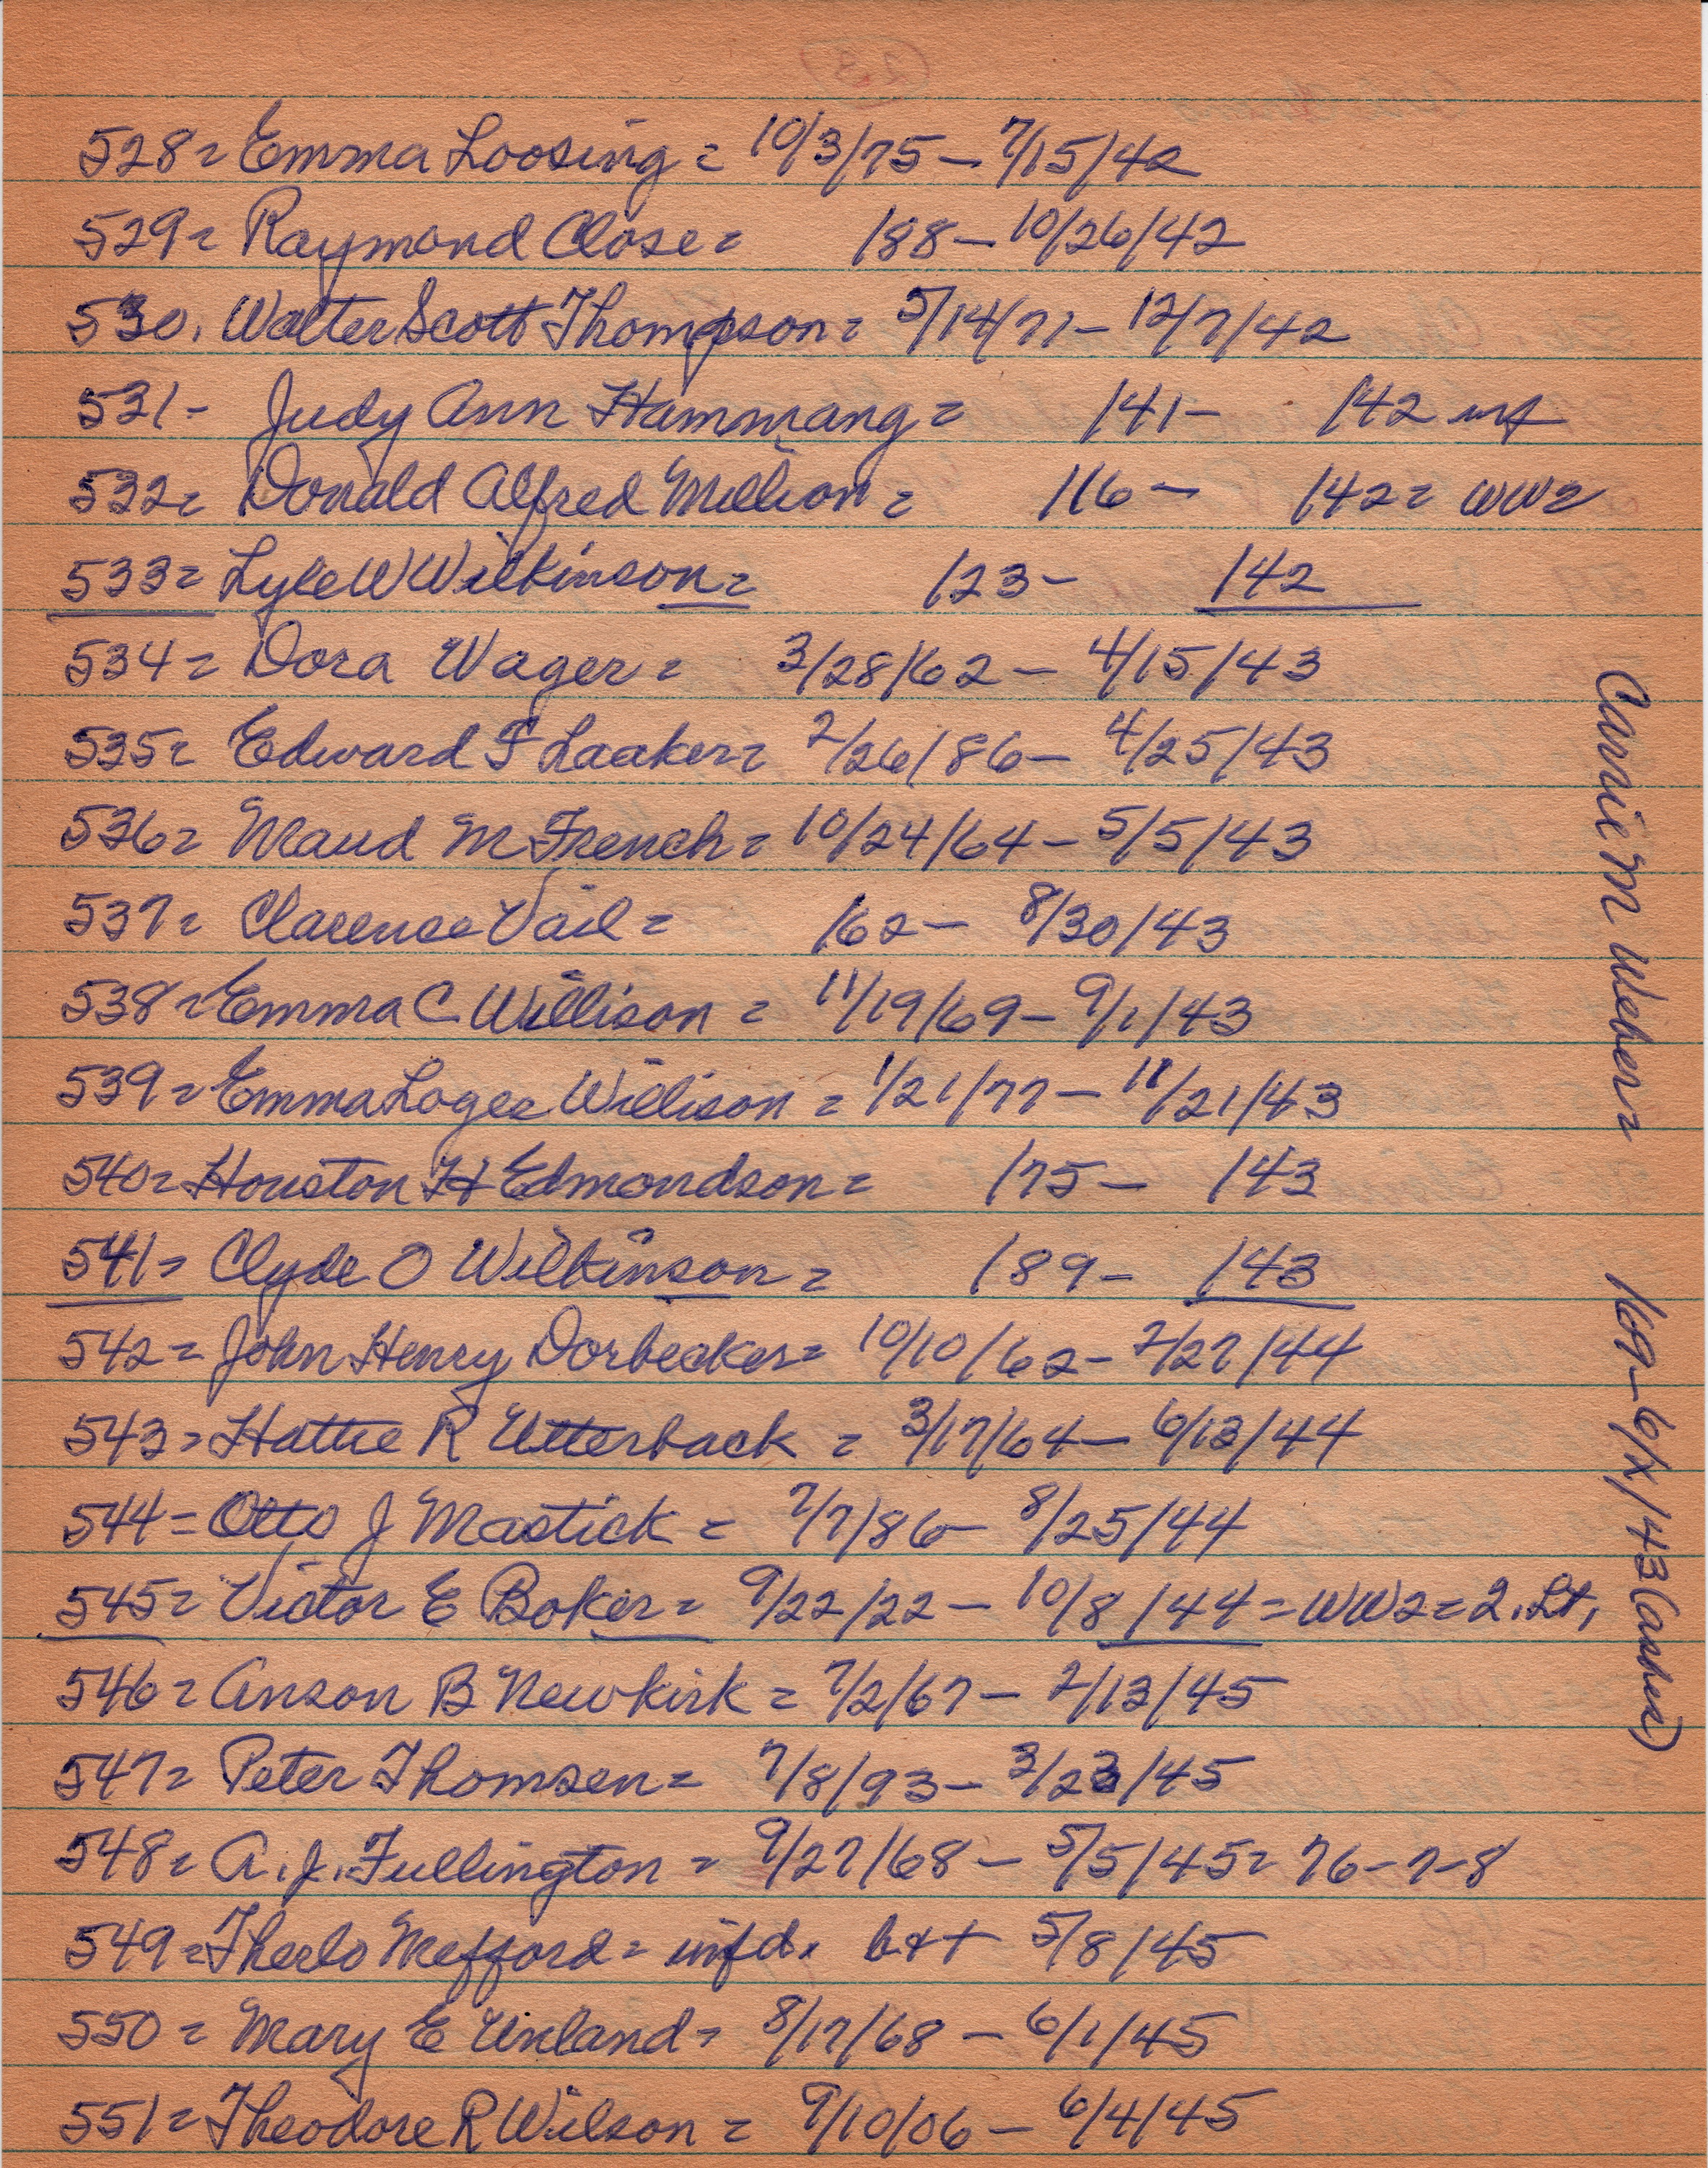 528= Emma Loosing = 10/3/75 - 7/15/42
529= Raymond Close = /88 - 10/26/42
530. Walter Scott Thompson = 5/14/71 - 12/7/42
531- Judy Ann Hammang = /41 - /42 inf
532= Donald Alfred Million = /16 - /42 = WW2
533= Lyle W Wilkinson = /23 - /42
534= Dora Wager = 3/28/62 - 4/15/43
535= Edward F Laaker = 2/26/86 - 4/25/43
536= Maud M French = 10/24/64 - 5/5/43
537= Clarence Vail = /62 - 8/30/43
538= Emma C Willison = 11/19/69 - 9/1/43
539= Emma Logee Willison = 1/21/77 - 11/21/43
540= Houston H Edmondson = /75 - /43
541= Clyde O Wilkinson = /89 - /43
542= John Henry Dorbecker = 10/10/62 - 2/27/44
543= Hattie R Utterback = 3/17/64 - 6/13/44
544= Otto J Mastick = 7/7/86 - 8/25/44
545= Victor E Boker = 9/22/22 - 10/8/44 = WW2 = 2. Lt.
546= Anson B Newkirk = 7/2/67 - 2/13/45
547= Peter Thomsen = 7/8/93 - 3/23/45
548= A. J. Fullington = 9/27/68 - 5/5/45 = 76-7-8
549= Therlo Mefford = infd. b++ 5/8/45
550= Mary E Unland = 8/17/68 - 6/1/45
551= Theodore R Wilson = 9/10/06 - 6/4/45
Carrie M Weber = /69 - 6/x/43 (ashes)